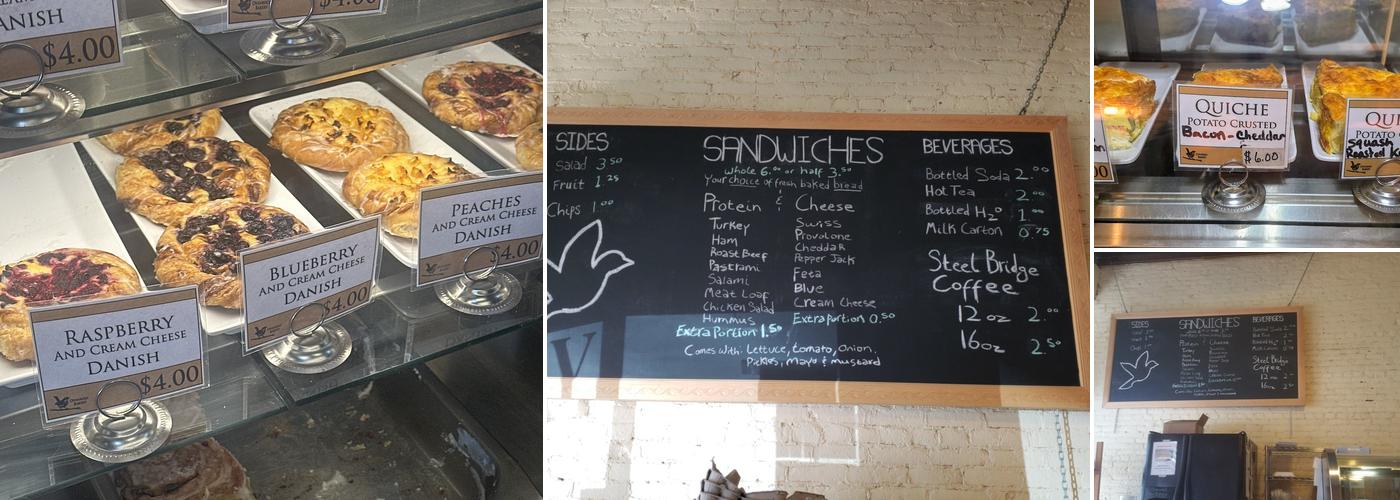 DANISH
$4.00
$4.00
RASPBERRY
AND CREAM CHEESE
DANISH
$4.00
BLUEBERRY
AND CREAM CHEESE
DANISH
$4.00
PEACHES
AND CREAM CHEESE
DANISH
$4.00
SIDES
Salad 3.50
Fruit 1.25
Chips 1.00
SANDWICHES
Whole 6.00 or half 3.50
Your choice of fresh baked bread
Protein & Cheese
Turkey Swiss
Ham Provolone
Roast Beef Cheddar
Pastrami Pepper Jack
Salami Feta
Meat Loaf Blue
Chicken Salad Cream Cheese
Hummus Extra portion 0.50
Extra Portion 1.50
Comes with: Lettuce, tomato, onion,
Pickles, Mayo & mustard
BEVERAGES
Bottled Soda 2.00
Hot Tea 2.00
Bottled H2O 1.00
Milk Carton 0.75
Steel Bridge
Coffee
12 oz 2.00
16oz 2.50
QUICHE
POTATO CRUSTED
Bacon-Cheddar
$6.00
QUI
POTATO
squash
Roasted
SIDES
SANDWICHES
BEVERAGES
Protein & Cheese
Steel Bridge
Coffee
12 oz
16oz